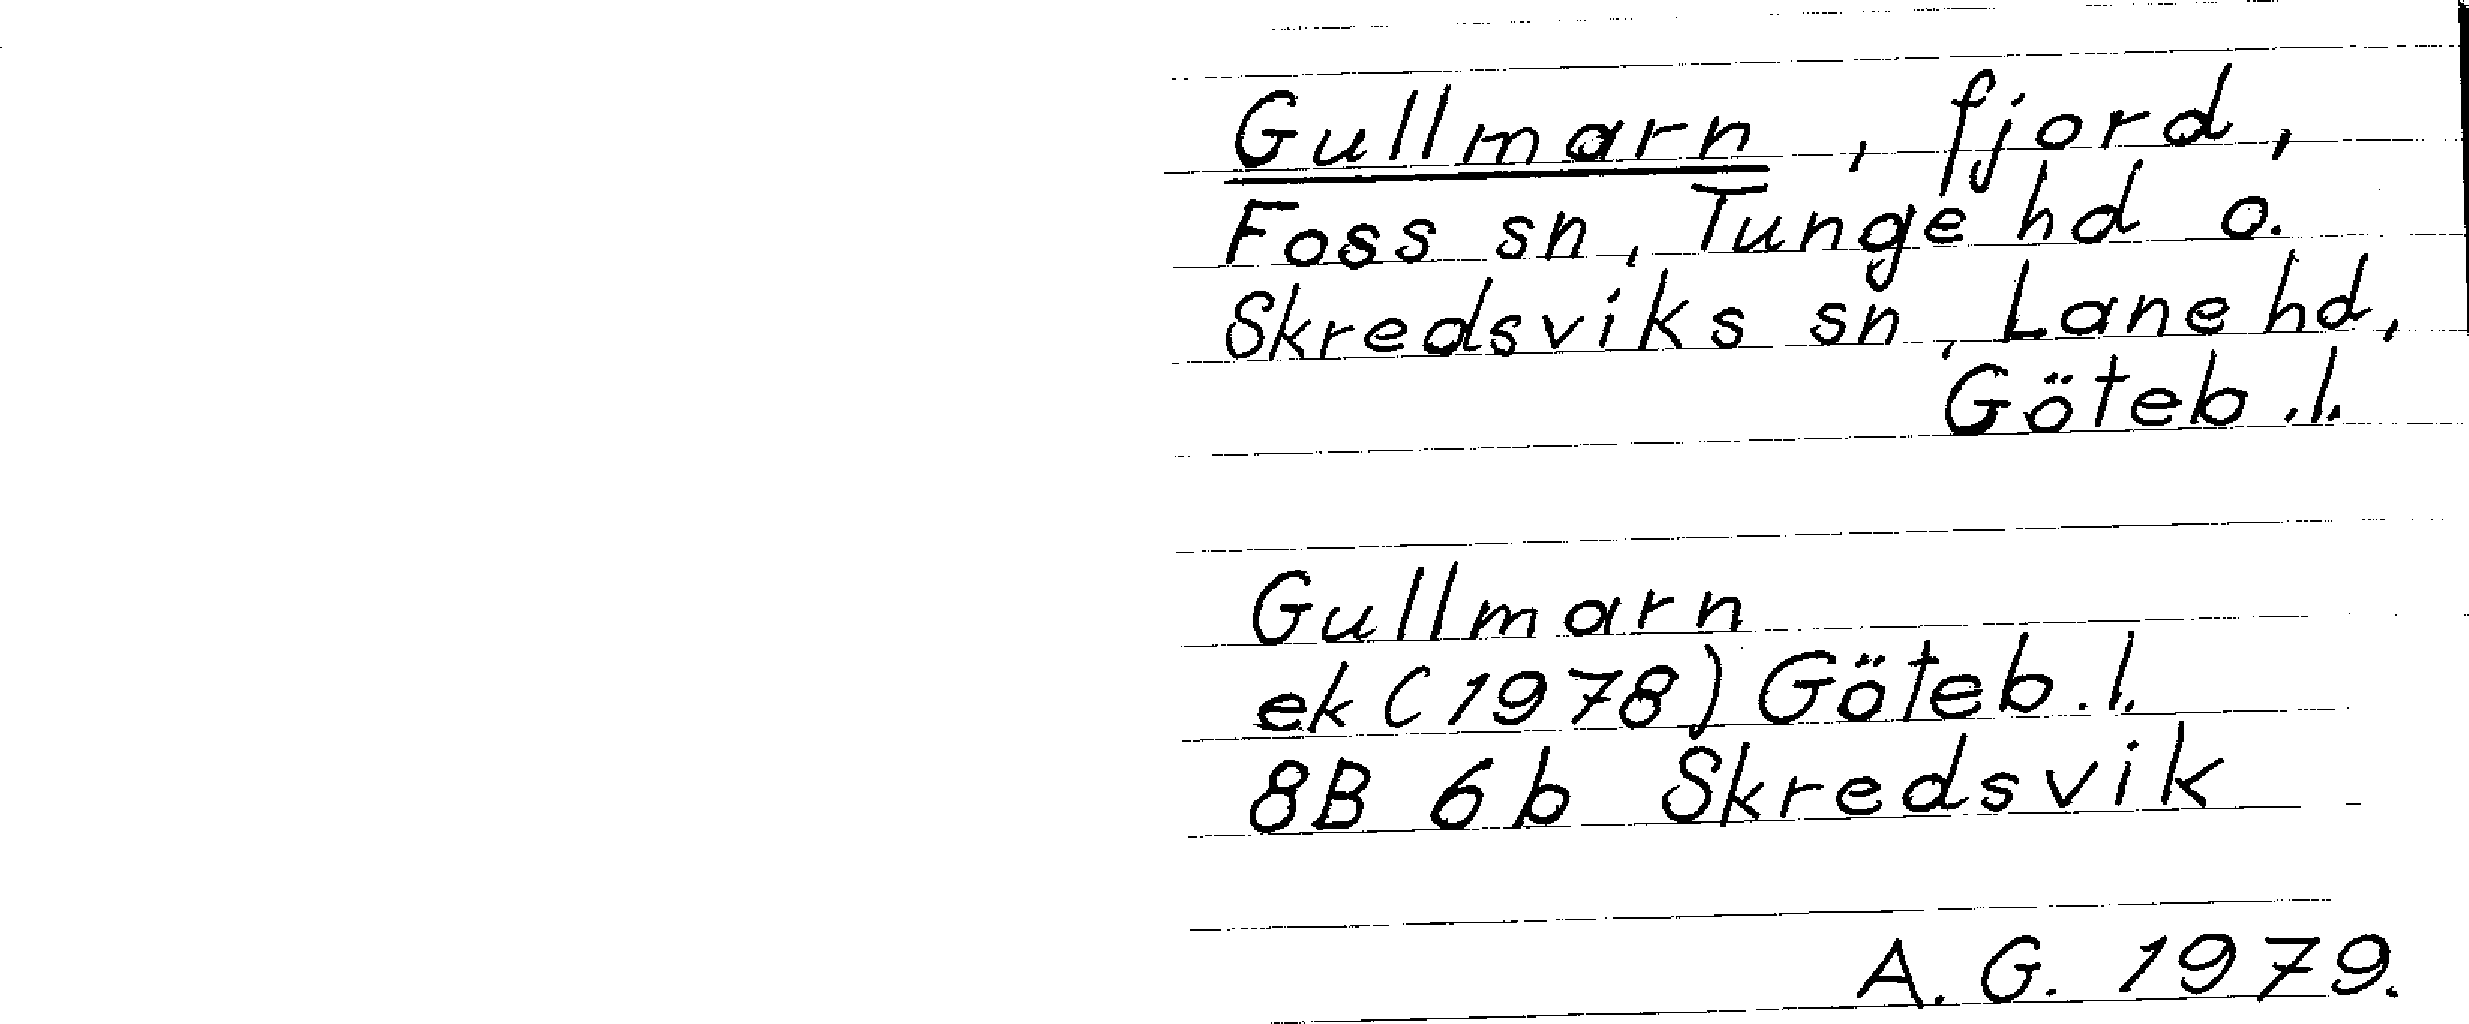 Gullmarn, fjord,
Foss sn, Tunge hd o.
Skredsviks sn, Lane hd,
Göteb.l.
Gullmarn
ek (1978) Göteb.l.
8B 6b Skredsvik
A.G. 1979.